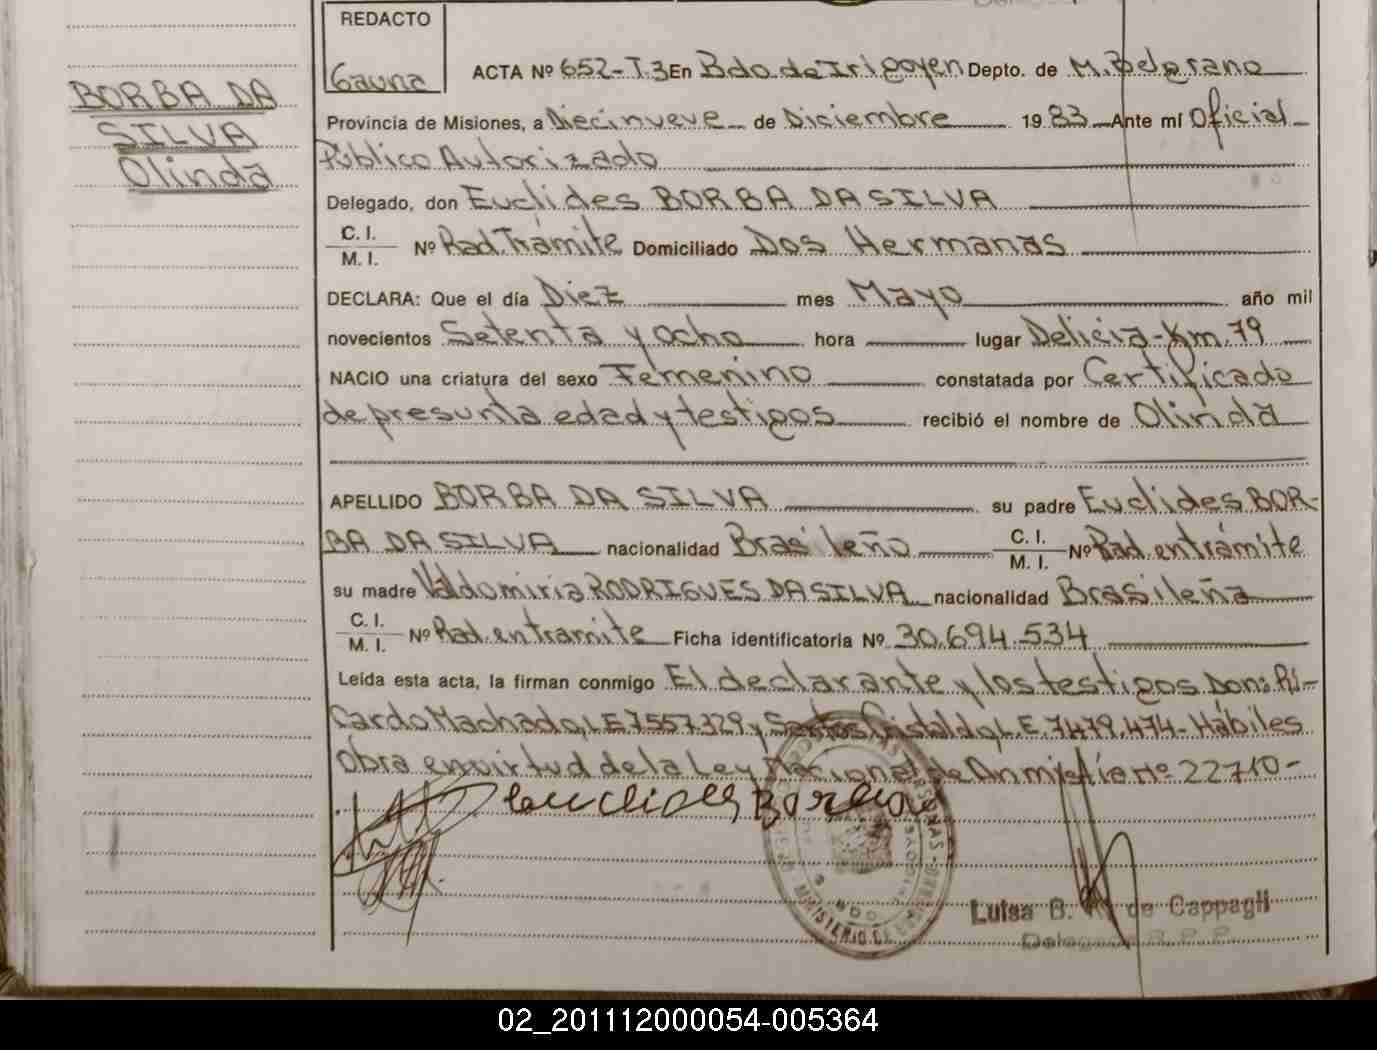 REDACTO
Gauna
BORBA DA
SILVA
Olinda
ACTA Nº 652-T.3 En Bdo de Irigoyen Depto. de M. Belgrano
Provincia de Misiones, a Diecinueve de Diciembre 1983 Ante mí Oficial
Público Autorizado
Delegado, don Euclides BORBA DA SILVA
C. I.
M. I. Nº Rad. Trámite Domiciliado Dos Hermanas
DECLARA: Que el día Diez mes Mayo año mil
novecientos Setenta y ocho hora lugar Delicia-Km. 79
NACIO una criatura del sexo Femenino constatada por Certificado
de presunta edad y testigos recibió el nombre de Olinda
APELLIDO BORBA DA SILVA su padre Euclides BOR-
BA DA SILVA nacionalidad Brasileño C. I. M. I. Nº Rad. en trámite
su madre Valdomiria RODRIGUES DA SILVA nacionalidad Brasileña
C. I.
M. I. Nº Rad. en tramite Ficha identificatoria Nº 30.694.534
Leída esta acta, la firman conmigo El declarante y los testigos Don: Ri-
cardo Machado, L.E 7557329 y Santos Cristaldo, L.E. 7479.474- Hábiles
Obra en virtud de la Ley Nacional de Anmistía Nº 22710-
Euclides Borba
Luisa B. de Cappagli
02_201112000054-005364